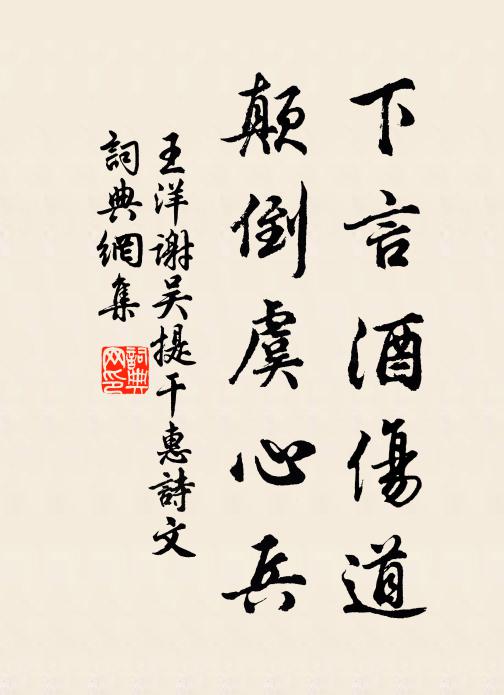 下言酒傷道
顛倒虞心兵
王洋謝吴提干惠詩文
詞典網集
詞典网印